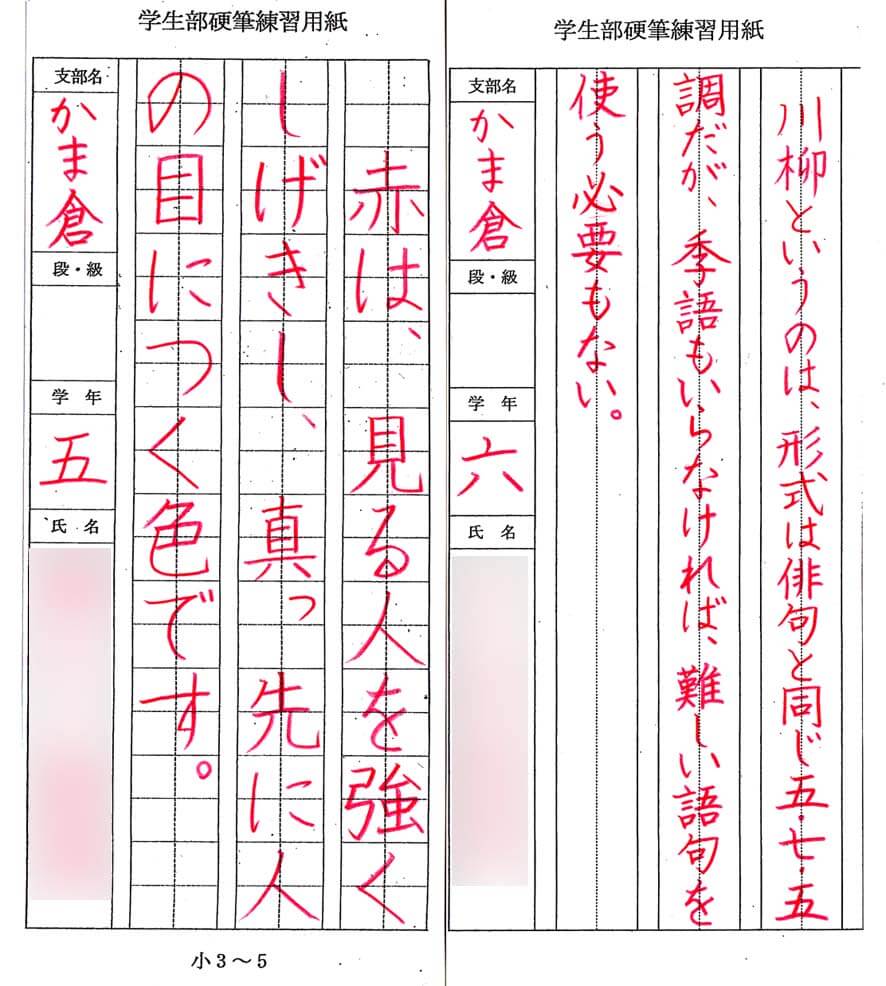 学生部硬筆練習用紙
川柳というのは、形式は俳句と同じ五・七・五
調だが、季語もいらなければ、難しい語句を
使う必要もない。
支部名
かま倉
段・級
学年
六
氏名
学生部硬筆練習用紙
赤は、見る人を強く
しげきし、真っ先に人
の目につく色です。
支部名
かま倉
段・級
学年
五
氏名
小3~5